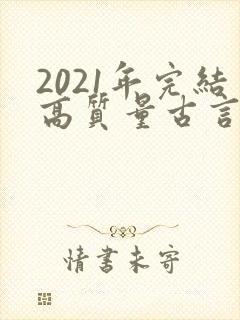 2021年完結
高質量古言
情書未寄